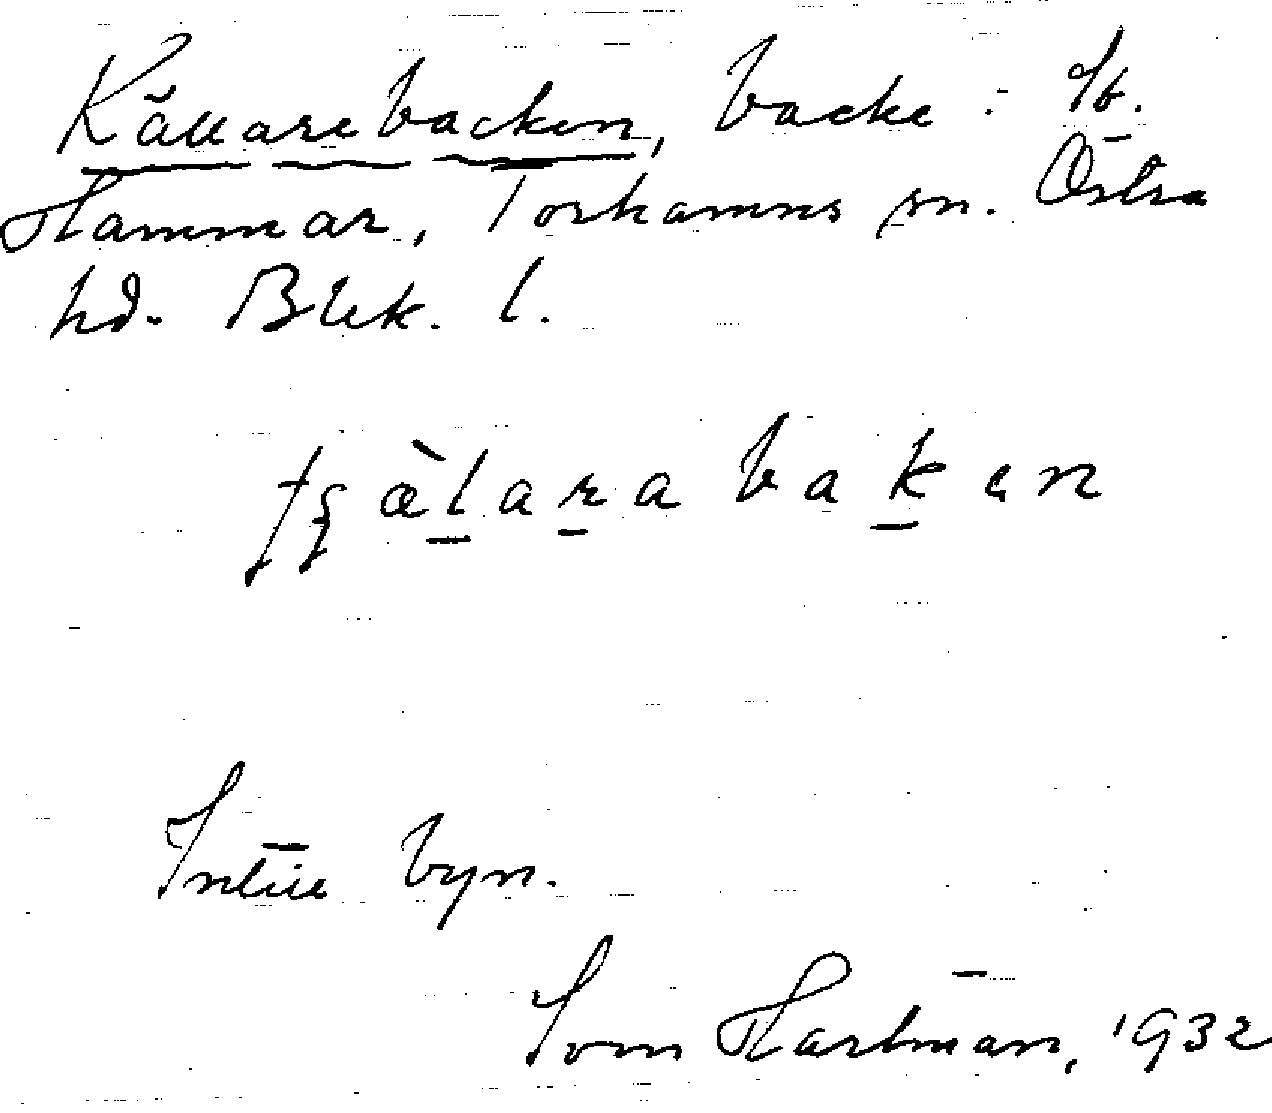 Källarebacken, backe : St.
Hammar, Torhamns sn. Östra
hd. Blek. l.
tʂæ̀larabakan
Intill byn.
Tom Hartman, 1932